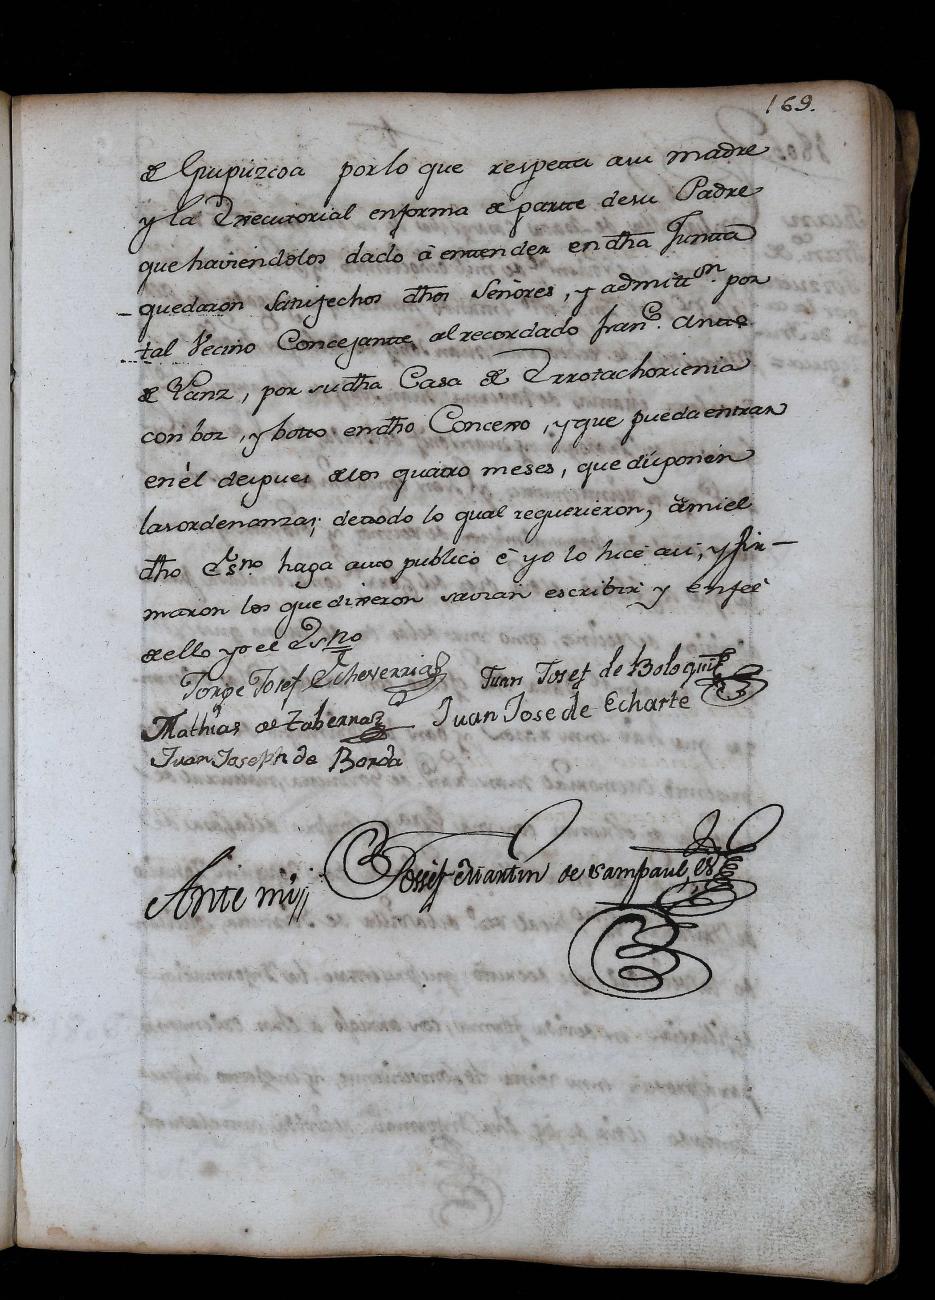 169.
de Guipuzcoa por lo que respetta a su madre
y la Executorial en forma de partte de su Padre
que haviendolos dado â entender en dha Juntta
quedaron satisfechos dhos Señòres, y admitton. por
tal Vecino Concejante al recordado Franco. Antto
de Yanz, por su dha Casa de Errotachorienia
con boz, y botto en dho Concexo, y que pueda entrar
en èl despues de los quatro meses, que disponen
las ordenanzas; de todo lo qual requerieron, â mi el
dho Esno. haga auto publico è yo lo hice assi, y fir-
maron los que dixeron savian escribir y en feè
de ello yo el Esno
Jorge Josef Echeverria Juan Josef de
Mathias de Tabernaz Juan Jose de Echarte
Juan Joseph de Borda
Ante mi Josef Martin de Sampaul, es